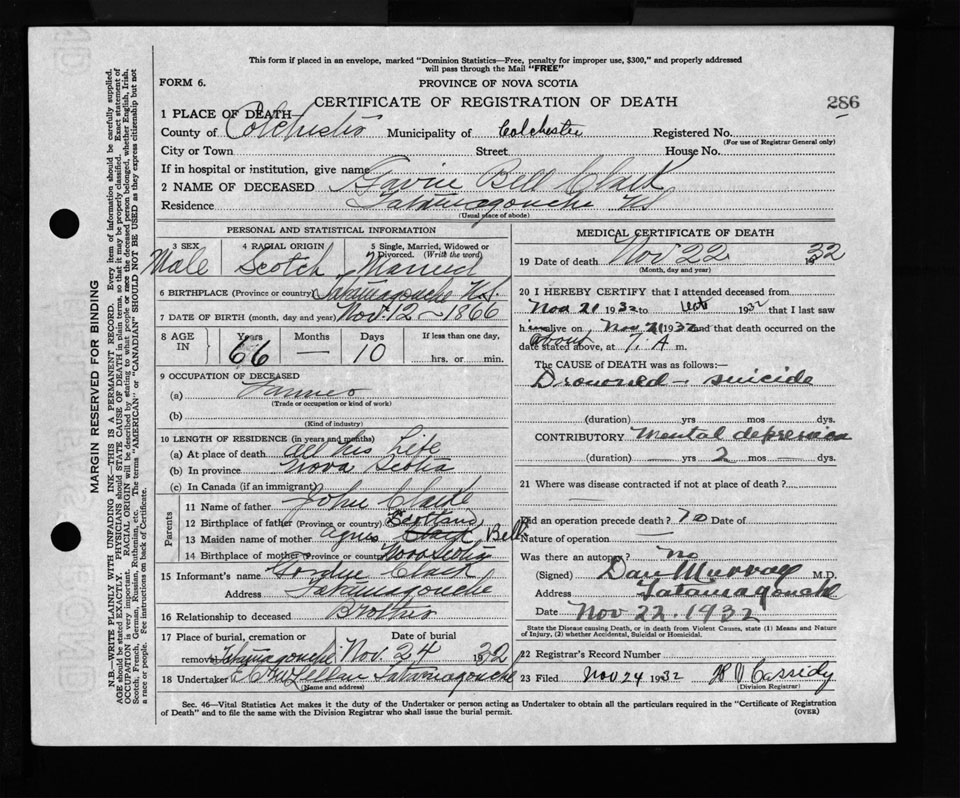 This form if placed in an envelope, marked "Dominion Statistics—Free, penalty for improper use, $300," and properly addressed
will pass through the Mail "FREE"
FORM 6.
PROVINCE OF NOVA SCOTIA
CERTIFICATE OF REGISTRATION OF DEATH
286
1 PLACE OF DEATH
County of Colchester Municipality of Colchester Registered No.
(For use of Registrar General only)
City or Town Street House No.
If in hospital or institution, give name
2 NAME OF DECEASED Gavin Bell Clark
Residence Tatamagouche NS
(Usual place of abode)
PERSONAL AND STATISTICAL INFORMATION
3 SEX 4 RACIAL ORIGIN 5 Single, Married, Widowed or
Divorced. (Write the word)
Male Scotch Married
6 BIRTHPLACE (Province or country) Tatamagouche N.S.
7 DATE OF BIRTH (month, day and year) Nov. 12 - 1866
8 AGE Years Months Days If less than one day,
IN 66 — 10 hrs. or min.
9 OCCUPATION OF DECEASED
(a) Farmer
(Trade or occupation or kind of work)
(b)
(Kind of industry)
10 LENGTH OF RESIDENCE (in years and months)
(a) At place of death all his Life
(b) In province Nova Scotia
(c) In Canada (if an immigrant)
Parents
11 Name of father John Clark
12 Birthplace of father (Province or country) Scotland
13 Maiden name of mother Agnes Bell
14 Birthplace of mother (Province or country) Nova Scotia
15 Informant's name Clark
Address Tatamagouche
16 Relationship to deceased Brother
17 Place of burial, cremation or Date of burial
removal Tatamagouche Nov. 24 1932
18 Undertaker Tatamagouche
(Name and address)
MEDICAL CERTIFICATE OF DEATH
19 Date of death Nov 22 1932
(Month, day and year)
20 I HEREBY CERTIFY that I attended deceased from
Nov 21 1932 to 1932 that I last saw
him alive on Nov 21 1932 and that death occurred on the
date stated above, at about 7. A m.
The CAUSE OF DEATH was as follows:—
Drowned - suicide
(duration) yrs mos dys.
CONTRIBUTORY Mental depression
(duration) — yrs 2 mos — dys.
21 Where was disease contracted if not at place of death?
Did an operation precede death? no Date of
Nature of operation —
Was there an autopsy? no
(Signed) Dan Murray M.D.
Address Tatamagouche
Date Nov 22. 1932
State the Disease causing Death, or in death from Violent Causes, state (1) Means and Nature
of Injury, (2) whether Accidental, Suicidal or Homicidal.
22 Registrar's Record Number
23 Filed Nov 24 1932 Cassidy
(Division Registrar)
Sec. 46—Vital Statistics Act makes it the duty of the Undertaker or person acting as Undertaker to obtain all the particulars required in the "Certificate of Registration
of Death" and to file the same with the Division Registrar who shall issue the burial permit.
(OVER)
MARGIN RESERVED FOR BINDING
N.B.—WRITE PLAINLY WITH UNFADING INK—THIS IS A PERMANENT RECORD. Every item of information should be carefully supplied.
AGE should be stated EXACTLY. PHYSICIANS should STATE CAUSE OF DEATH in plain terms, so that it may be properly classified. Exact statement of
OCCUPATION is very important. RACIAL ORIGIN will be described by stating to what people or race the deceased person belonged, whether English, Irish,
Scotch, French, German, Russian, Ruthenian, etc. The terms "AMERICAN" or "CANADIAN" SHOULD NOT BE USED as they express citizenship but not
a race or people. See instructions on back of Certificate.